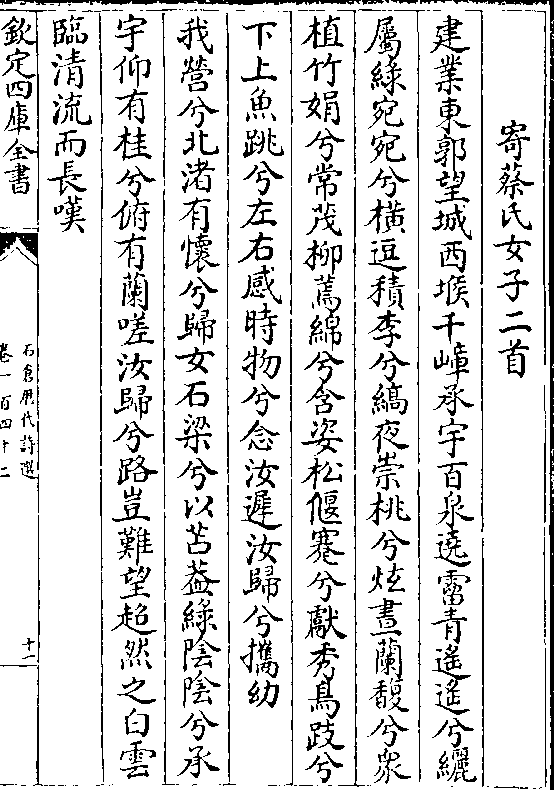 寄蔡氏女子二首
建業東郭望城西堠千嶂承宇百泉遶霤青遙遙兮纚
屬綠宛宛兮橫逗積李兮縞夜崇桃兮炫晝蘭馥兮衆
植竹娟兮常茂柳蔫綿兮含姿松偃蹇兮獻秀鳥跂兮
下上魚跳兮左右感時物兮念汝遲汝歸兮攜幼
我營兮北渚有懷兮歸女石梁兮以苫葢綠陰陰兮承
宇仰有桂兮俯有蘭嗟汝歸兮路豈難望超然之白雲
臨清流而長嘆
欽定四庫全書
石倉歷代詩選
卷一百四十二
十一